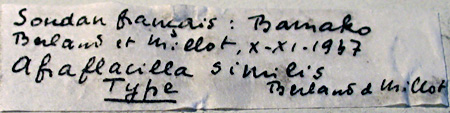 Soudan français : Bamako
Berland et Millot, X-XI-1937
Afraflacilla similis
Type Berland & Millot